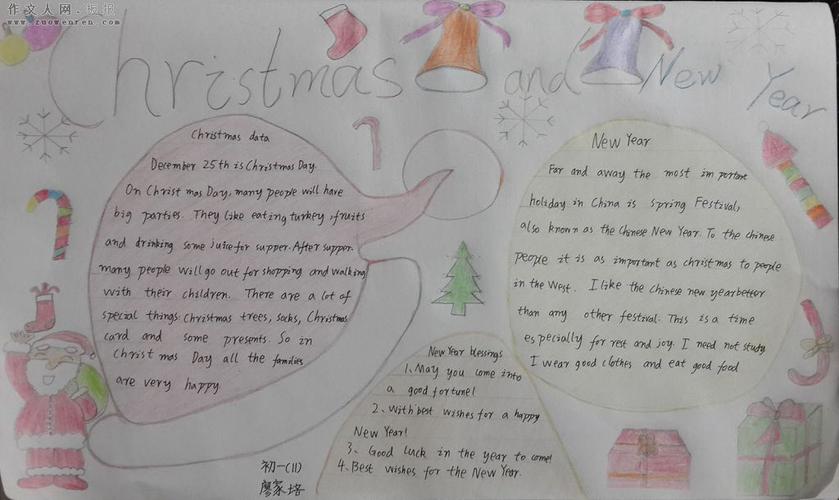 作文人网.板报
www.zuowenren.com
Christmas and New Year
Christmas data
December 25th is Christmas Day.
On Christ mas Day, many people will have
big parties. They like eating turkey, fruits
and drinking some juice for supper. After supper.
many people will go out for shopping and walking
with their children. There are a lot of
special things: Christmas trees, socks, Christmas
card and some presents. So in
Christ mas Day all the families
are very happy
New Year
Far and away the most im portant
holiday in China is Spring Festival,
also known as the Chinese New Year. To the chinese
people it is as important as christmas to people
in the West. I like the chinese new year better
than any other festival. This is a time
es pecially for rest and joy. I need not study
I wear good clothes and eat good food
New Year blessings
1、May you come into
a good fortune!
2、With best wishes for a happy
New Year!
3、Good luck in the year to come!
4、Best wishes for the New Year.
初一(11)
廖家培